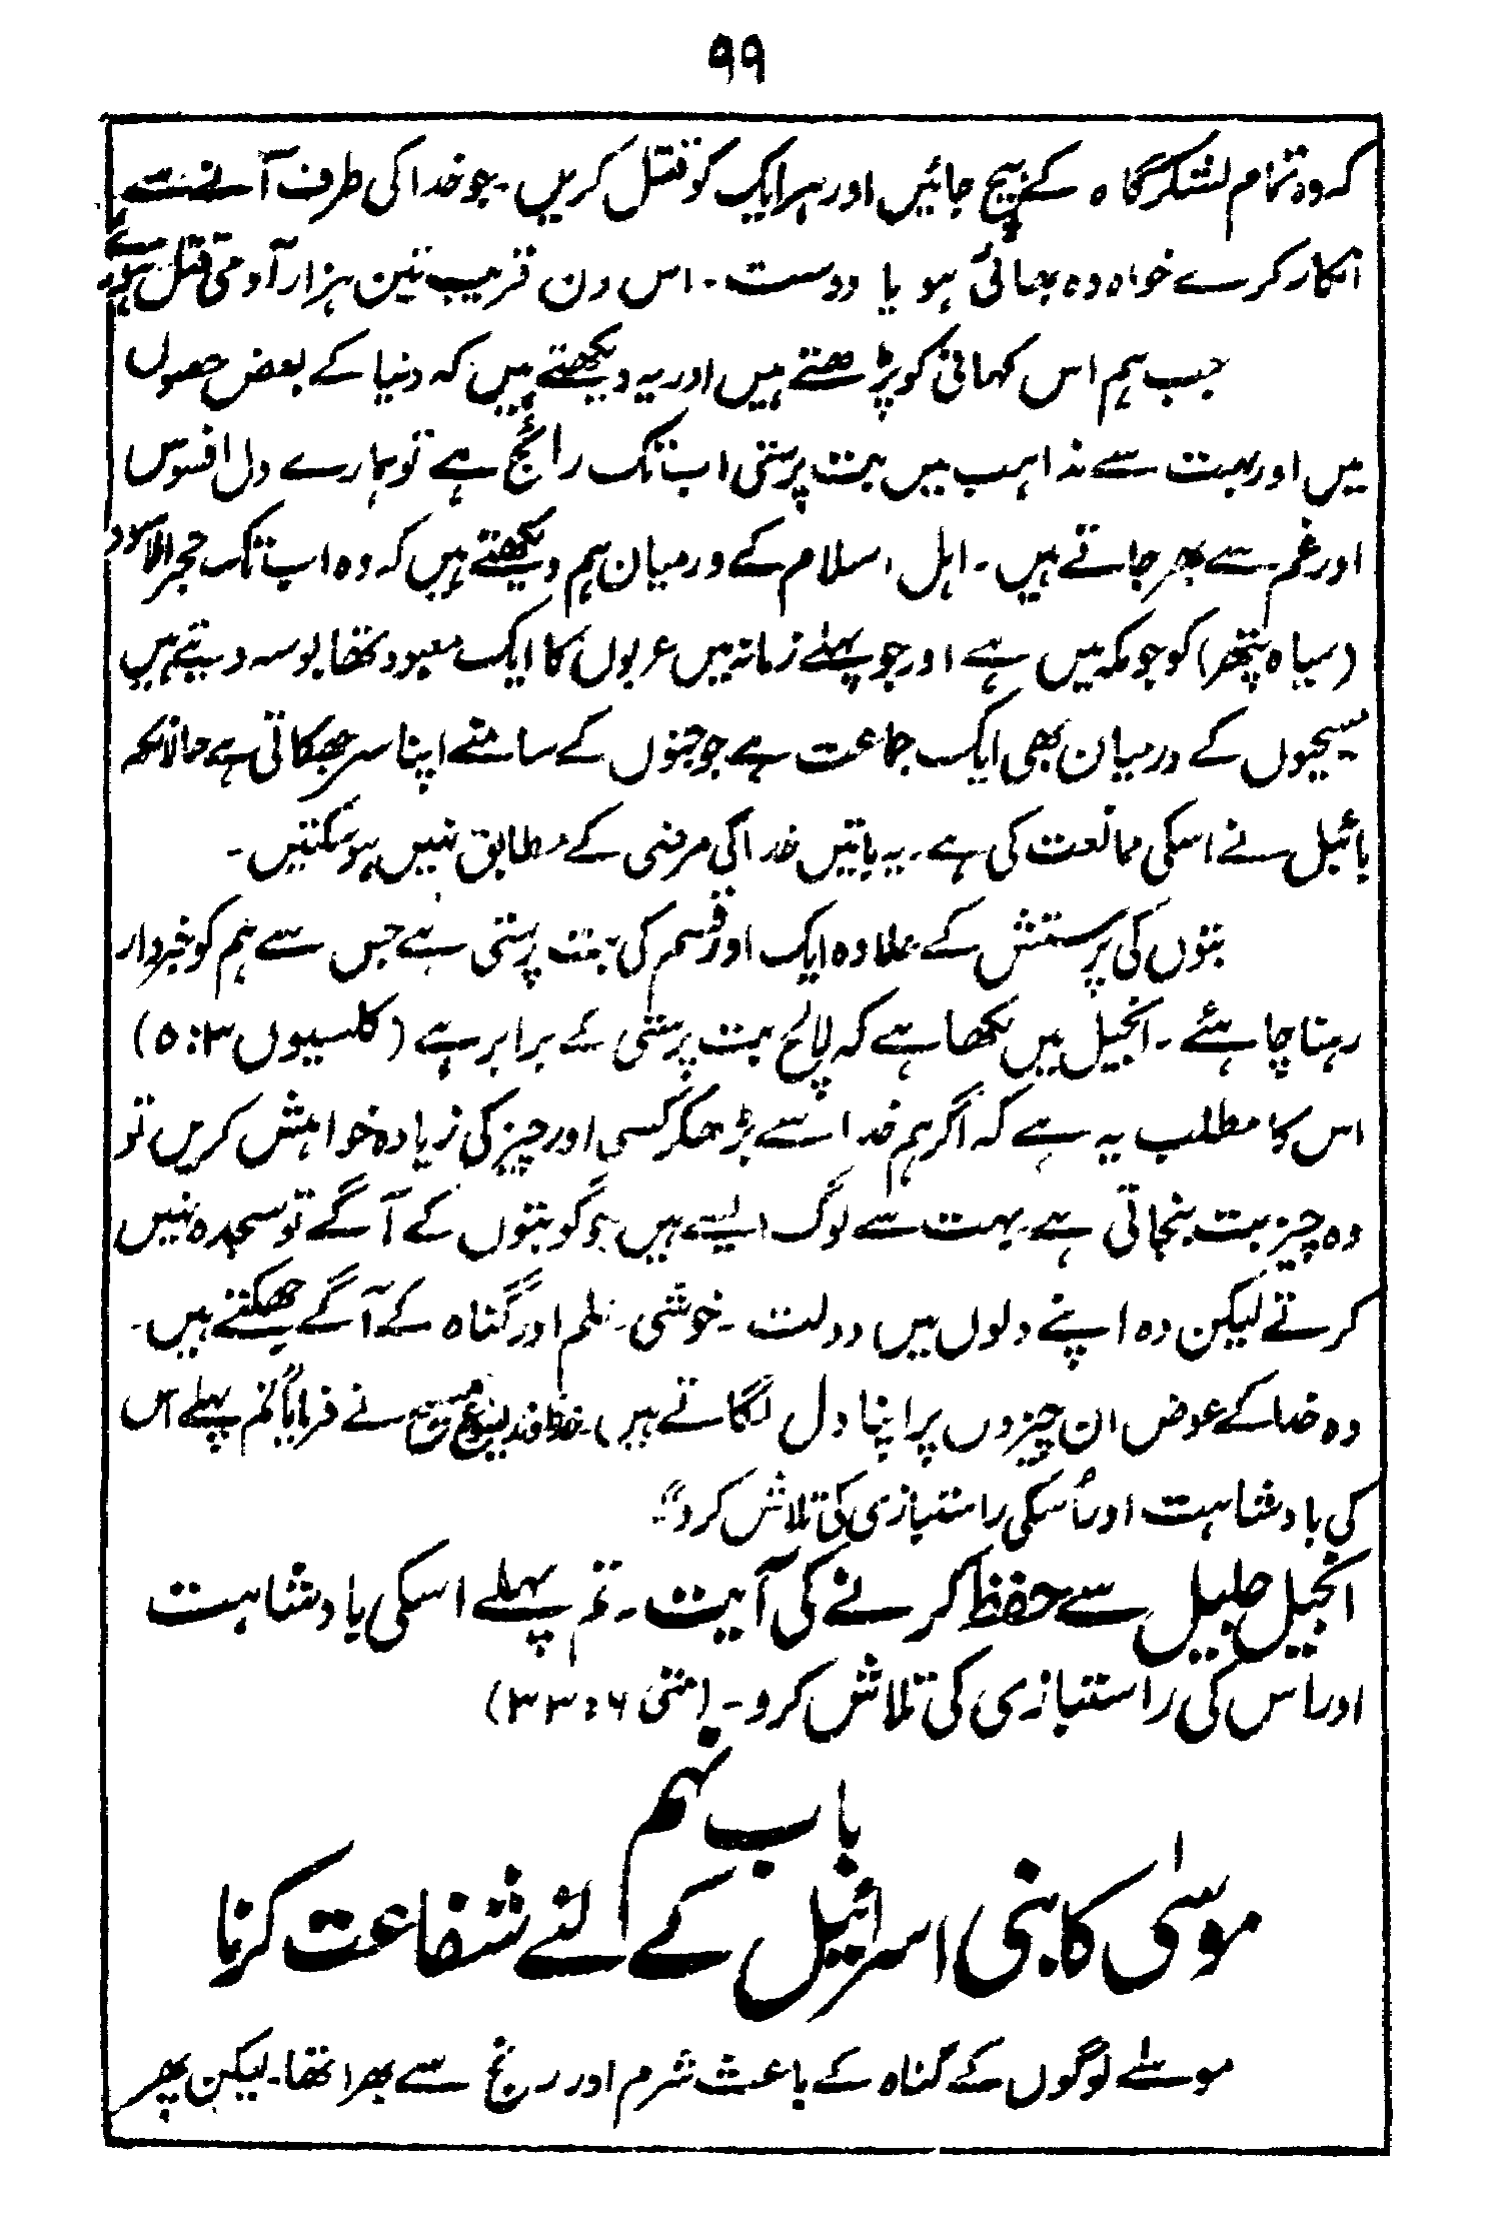 ۹۹
کہ وہ تمام لشکرگاہ کے بیچ جائیں اور ہر ایک کو قتل کریں ۔ جو خدا کی طرف آنے سے
انکار کرے خواہ وہ بھائی ہو یا دوست ۔ اس دن قریب تین ہزار آدمی قتل ہو گئے
جب ہم اس کہانی کو پڑھتے ہیں اور یہ دیکھتے ہیں کہ دنیا کے بعض حصوں
میں اور بہت سے مذاہب میں بت پرستی اب تک رائج ہے تو ہمارے دل افسوس
اور غم سے بھر جاتے ہیں ۔ اہل اسلام کے درمیان ہم دیکھتے ہیں کہ وہ اب تک حجر الاسود
(سیاہ پتھر) کو جو مکہ میں ہے اور جو پہلے زمانہ میں عربوں کا ایک معبود تھا بوسہ دیتے ہیں
مسیحیوں کے درمیان بھی ایک جماعت ہے جو بتوں کے سامنے اپنا سر جھکاتی ہے حالانکہ
بائبل نے اسکی ممانعت کی ہے ۔ یہ باتیں خدا کی مرضی کے مطابق نہیں ہو سکتیں ۔
بتوں کی پرستش کے علاوہ ایک اور قسم کی بت پرستی ہے جس سے ہم کو خبردار
رہنا چاہئے ۔ انجیل میں لکھا ہے کہ لالچ بت پرستی کے برابر ہے (کلسیوں ۳:۵)
اس کا مطلب یہ ہے کہ اگر ہم خدا سے بڑھکر کسی اور چیز کی زیادہ خواہش کریں تو
وہ چیز بت بنجاتی ہے ۔ بہت سے لوگ ایسے ہیں جو گو بتوں کے آگے تو سجدہ نہیں
کرتے لیکن وہ اپنے دلوں میں دولت ۔ خوشی ۔ علم اور گناہ کے آگے جھکتے ہیں ۔
وہ خدا کے عوض ان چیزوں پر اپنا دل لگاتے ہیں ۔ خداوند یسوع مسیح نے فرمایا "تم پہلے اس
کی بادشاہت اور اُسکی راستبازی کی تلاش کرو" ۔
انجیل جلیل سے حفظ کرنے کی آیت ۔ تم پہلے اسکی بادشاہت
اور اس کی راستبازی کی تلاش کرو ۔ (متی ۶:۳۳)
باب نہم
موسیٰ کا بنی اسرائیل کے لئے شفاعت کرنا
موسےٰ لوگوں کے گناہ کے باعث شرم اور رنج سے بھرا تھا ۔ لیکن پھر